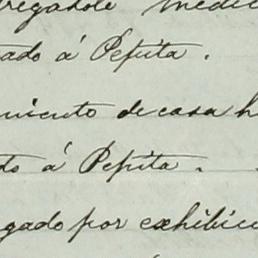 regadole medic
ado á Pepita.
miento de casa h
do á Pepita.
gado por exhibici